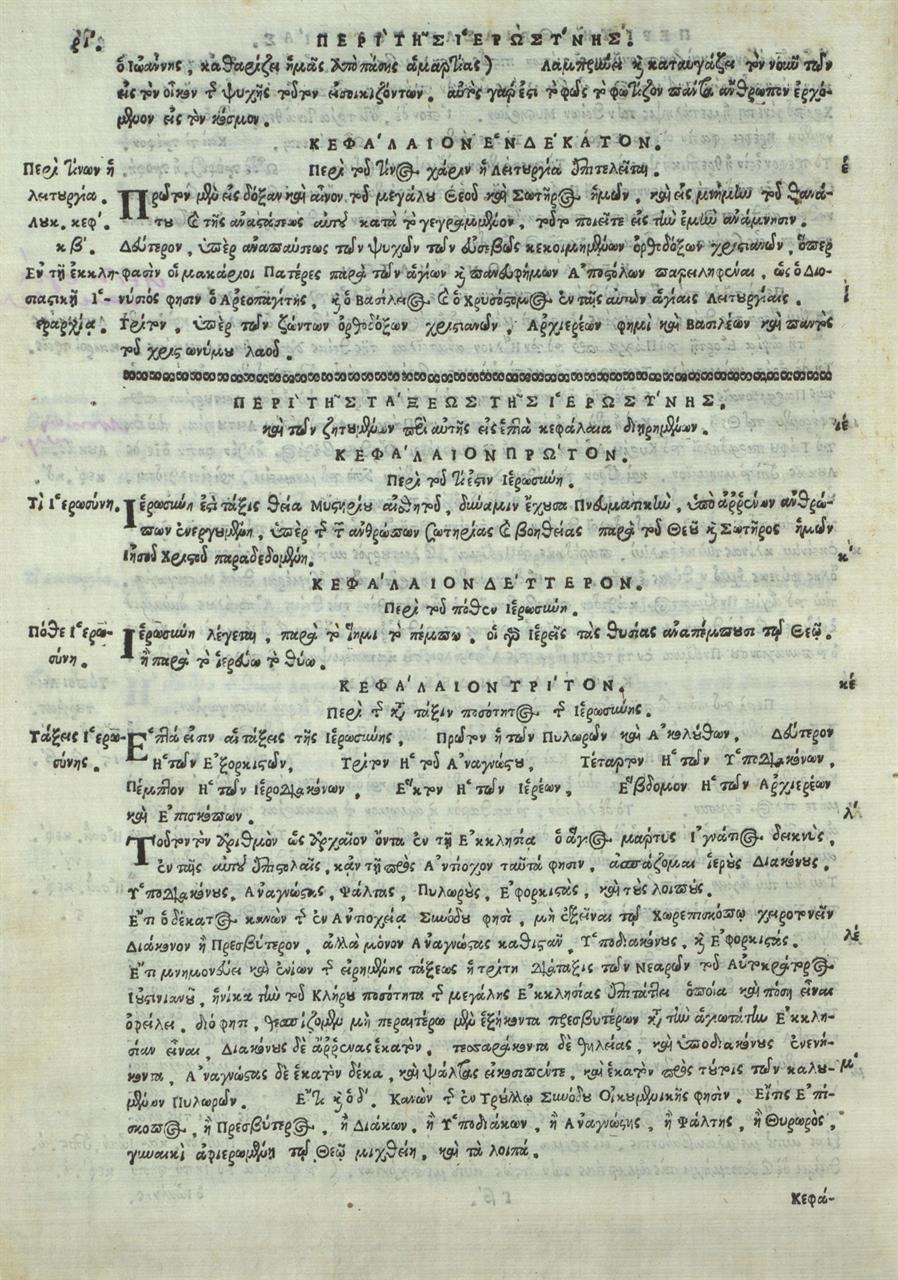 ΠΕΡΙ ΤΗ͂Σ ἹΕΡΩΣΥΝΗΣ.
ὁ Ἰωάννης, καθαρίζει ἡμᾶς ἀπὸ πάσης ἁμαρτίας) Λαμπρύνει καὶ καταυγάζει τὸν νοῦν τῶν
εἰς τὸν οἶκον τῆς ψυχῆς τοῦτον εἰσοικιζόντων. αὐτὸς γάρ ἐστι τὸ φῶς τὸ φωτίζον πάντα ἄνθρωπον ἐρχό-
μενον εἰς τὸν κόσμον.
ΚΕΦΑ΄ΛΑΙΟΝ Ἑ΄ΝΔΕΚΑΤΟΝ.
Περὶ τίνων ἡ
λειτυργία.
Λυκ. κεφ.
κβ΄.
Ἐν τῇ ἐκκλη-
σιαστικῇ Ἱε-
ραρχίᾳ.
Περὶ τοῦ τίνος χάριν ἡ Λειτυργία ἐπιτελεῖται. ε΄
Πρῶτον μὲν εἰς δόξαν καὶ αἶνον τοῦ μεγάλου Θεοῦ καὶ Σωτῆρος ἡμῶν, καὶ εἰς μνήμην τοῦ θανά-
του καὶ τῆς ἀναστάσεως αὐτοῦ κατὰ τὸ γεγραμμένον, τοῦτο ποιεῖτε εἰς τὴν ἐμὴν ἀνάμνησιν.
Δεύτερον, ὑπὲρ ἀναπαύσεως τῶν ψυχῶν τῶν εὐσεβῶς κεκοιμημένων ὀρθοδόξων χριστιανῶν, ὅπερ
φασὶν οἱ μακάριοι Πατέρες παρὰ τῶν ἁγίων καὶ πανευφήμων Ἀποστόλων παρειληφέναι, ὡς ὁ Διο-
νύσιός φησιν ὁ Ἀρεοπαγίτης, καὶ ὁ Βασίλειος καὶ ὁ Χρυσόστομος ἐν ταῖς αὐτῶν ἁγίαις Λειτυργίαις. ι΄
Τρίτον, ὑπὲρ τῶν ζώντων ὀρθοδόξων χριστιανῶν, Ἀρχιερέων φημὶ καὶ Βασιλέων καὶ παντὸς
τοῦ χριστωνύμου λαοῦ.
ΠΕΡΙ ΤΗ͂Σ ΤΑ΄ΞΕΩΣ ΤΗ͂Σ ἹΕΡΩΣΥΝΗΣ.
καὶ τῶν ζητουμένων περὶ αὐτῆς εἰς ἑπτὰ κεφάλαια διῃρημένων. ιε΄
ΚΕΦΑ΄ΛΑΙΟΝ ΠΡΩ͂ΤΟΝ.
Περὶ τοῦ τί ἐστιν Ἱερωσύνη.
Τί Ἱερωσύνη.
Ἱερωσύνη ἐστὶ τάξις θεία Μυστηρίου αἰσθητοῦ, δύναμιν ἔχουσα Πνευματικὴν, ὑπὸ ἀρρένων ἀνθρώ-
πων ἐνεργουμένη, ὑπὲρ τῆς τῶν ἀνθρώπων σωτηρίας καὶ βοηθείας παρὰ τοῦ Θεοῦ καὶ Σωτῆρος ἡμῶν
Ἰησοῦ Χριστοῦ παραδεδομένη. κ΄
ΚΕΦΑ΄ΛΑΙΟΝ ΔΕΥ΄ΤΕΡΟΝ.
Περὶ τοῦ πόθεν Ἱερωσύνη.
Πόθε Ἱερω-
σύνη.
Ἱερωσύνη λέγεται, παρὰ τὸ ἵημι τὸ πέμπω. οἱ γὰρ Ἱερεῖς τὰς θυσίας ἀναπέμπουσι τῷ Θεῷ.
ἢ παρὰ τὸ ἱερεύω τὸ θύω.
ΚΕΦΑ΄ΛΑΙΟΝ ΤΡΙ΄ΤΟΝ. κε΄
Περὶ τῆς κατὰ τάξιν ποσότητος τῆς Ἱερωσύνης.
Τάξεις Ἱερω-
σύνης.
Ἑπτά εἰσιν αἱ τάξεις τῆς Ἱερωσύνης. Πρῶτον ἡ τῶν Πυλωρῶν καὶ Ἀκολύθων. Δεύτερον
Ἡ τῶν Ἐξορκιστῶν, Τρίτον Ἡ τοῦ Ἀναγνώστου, Τέταρτον Ἡ τῶν Ὑποδιακόνων,
Πέμπτον Ἡ τῶν Ἱεροδιακόνων, Ἕκτον Ἡ τῶν Ἱερέων, Ἕβδομον Ἡ τῶν Ἀρχιερέων
καὶ Ἐπισκόπων. λ΄
Τοῦτον τὸν ἀριθμὸν ὡς ἀρχαῖον ὄντα ἐν τῇ Ἐκκλησίᾳ ὁ ἅγιος μάρτυς Ἰγνάτιος δεικνὺς,
ἐν ταῖς αὐτοῦ ἐπιστολαῖς, κἀν τῇ πρὸς Ἀντίοχον ταῦτά φησιν, ἀσπάζομαι ἱερὺς Διακόνυς,
Ὑποδιακόνυς, Ἀναγνώστας, Ψάλτας, Πυλωρὺς, Ἐφορκιστὰς, καὶ τὺς λοιπύς.
Ἔτι ὁ δέκατος κανὼν τῆς ἐν Ἀντιοχείᾳ Συνόδου φησὶ, μὴ ἐξεῖναι τῷ Χωρεπισκόπῳ χειροτονεῖν
Διάκονον ἢ Πρεσβύτερον, ἀλλὰ μόνον Ἀναγνώστας καθιστᾷν, Ὑποδιακόνυς, καὶ Ἐφορκιστάς. λε΄
Ἔτι μνημονεύει καὶ ἐνίων τῆς εἰρημένης τάξεως ἡ τρίτη Διάταξις τῶν Νεαρῶν τοῦ Αὐτοκράτορος
Ἰουστινιανοῦ, ἡνίκα τὴν τοῦ Κλήρου ποσότητα τῆς μεγάλης Ἐκκλησίας ἐπιτάττει ὁποία καὶ πόση εἶναι
ὀφείλει. διό φησι, θεσπίζομεν μὴ περαιτέρω μὲν ἑξήκοντα πρεσβυτέρων κατὰ τὴν ἁγιωτάτην Ἐκκλη-
σίαν εἶναι, Διακόνυς δὲ ἄρρενας ἑκατὸν. τεσσαράκοντα δὲ θηλείας, καὶ ὑποδιακόνυς ἐνενή-
κοντα, Ἀναγνώστας δὲ ἑκατὸν δέκα, καὶ ψάλτας εἰκοσιπέντε, καὶ ἑκατὸν πρὸς τύτοις τῶν καλυ- μ΄
μένων Πυλωρῶν. Ἔτι καὶ ὁ δ΄. Κανὼν τῆς ἐν Τρούλλῳ Συνόδου Οἰκουμενικῆς φησὶν. Εἴτις Ἐπί-
σκοπος, ἢ Πρεσβύτερος, ἢ Διάκων, ἢ Ὑποδιάκων, ἢ Ἀναγνώστης, ἢ Ψάλτης, ἢ Θυρωρὸς,
γυναικὶ ἀφιερωμένῃ τῷ Θεῷ μιχθείη, καὶ τὰ λοιπά.
Κεφά-